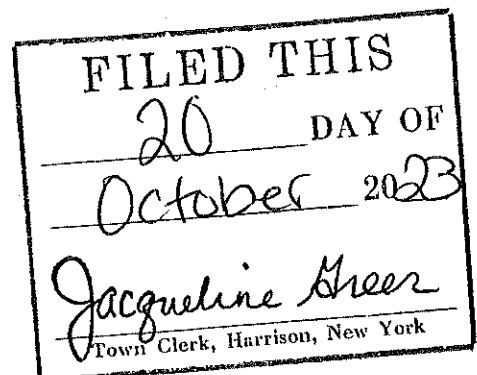 FILED THIS
20 DAY OF
October 2023
Jacqueline Greer
Town Clerk, Harrison, New York